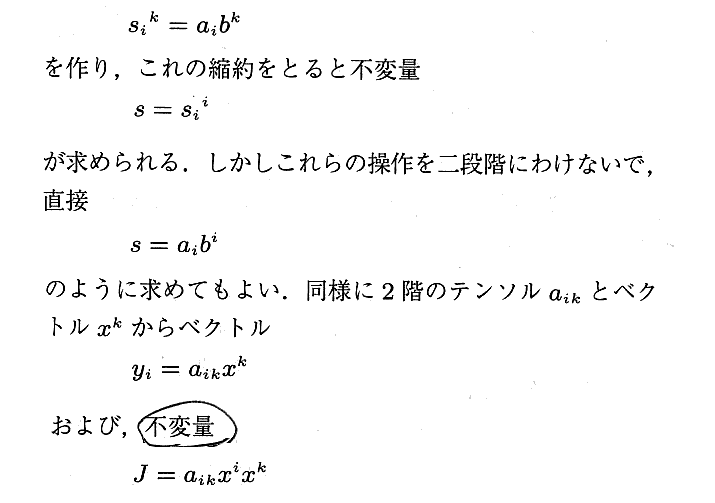 sᵢᵏ = aᵢbᵏ
を作り，これの縮約をとると不変量
s = sᵢⁱ
が求められる．しかしこれらの操作を二段階にわけないで，
直接
s = aᵢbⁱ
のように求めてもよい．同様に 2 階のテンソル aᵢₖ とベク
トル xᵏ からベクトル
yᵢ = aᵢₖxᵏ
および，不変量
J = aᵢₖxⁱxᵏ